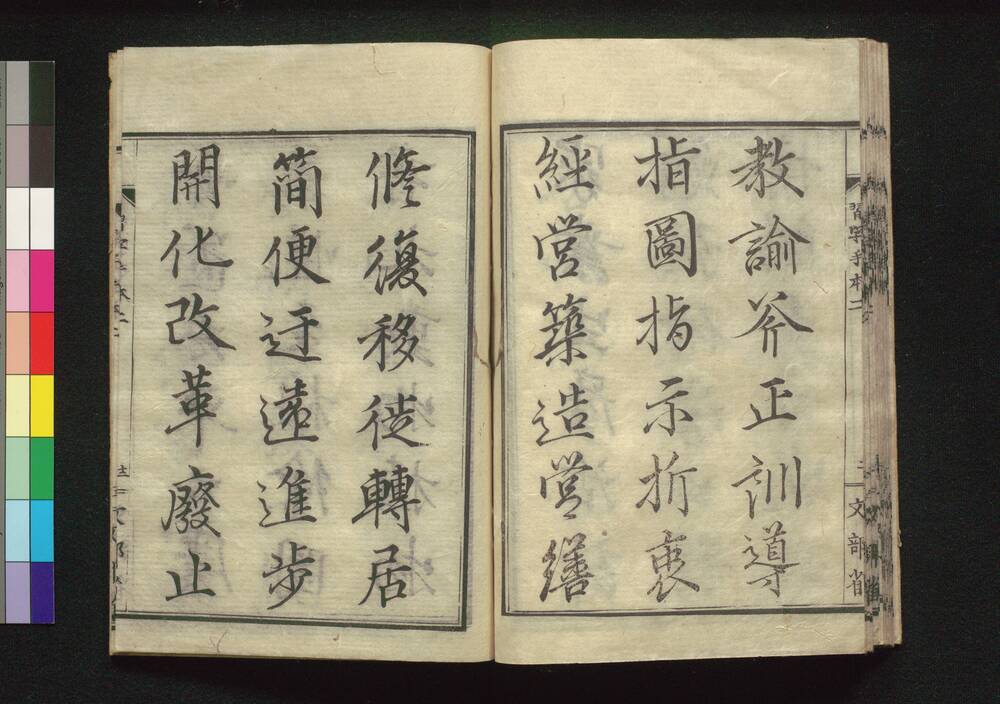 教諭斧正訓導
指圖指示折衷
經営築造営繕
脩復移徙轉居
簡便迂遠進歩
開化改革廢止
習字手本二
文部省